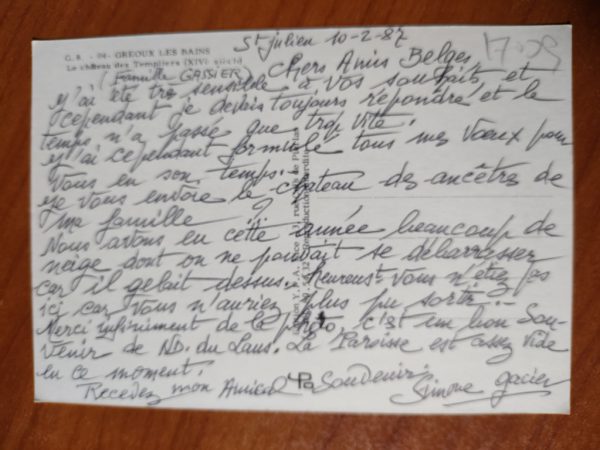 St Julien 10-2-87
G. R. - 04 - GREOUX LES BAINS
Le château des Templiers (XIVe siècle)
(Famille GASSIER)
Chers Amis Belges,
J'ai été très sensible à vos souhaits et
cependant je devais toujours répondre et le
temps n'a passé que trop vite.
J'ai cependant formulé tous mes vœux pour
vous en son temps.
Je vous envoie le château des ancêtres de
ma famille
Nous avons eu cette année beaucoup de
neige dont on ne pouvait se débarrasser
car il gelait dessus. heureust vous n'étiez pas
ici car vous n'auriez plus pu sortir.
Merci infiniment de la photo, c'est un bon Sou-
venir de ND. du Laus. La Paroisse est assez vide
en ce moment.
Recevez mon Amical Souvenir.
Simone gacier